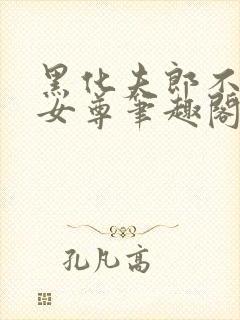 黑化夫郎不
女尊笔趣阁
孔凡高